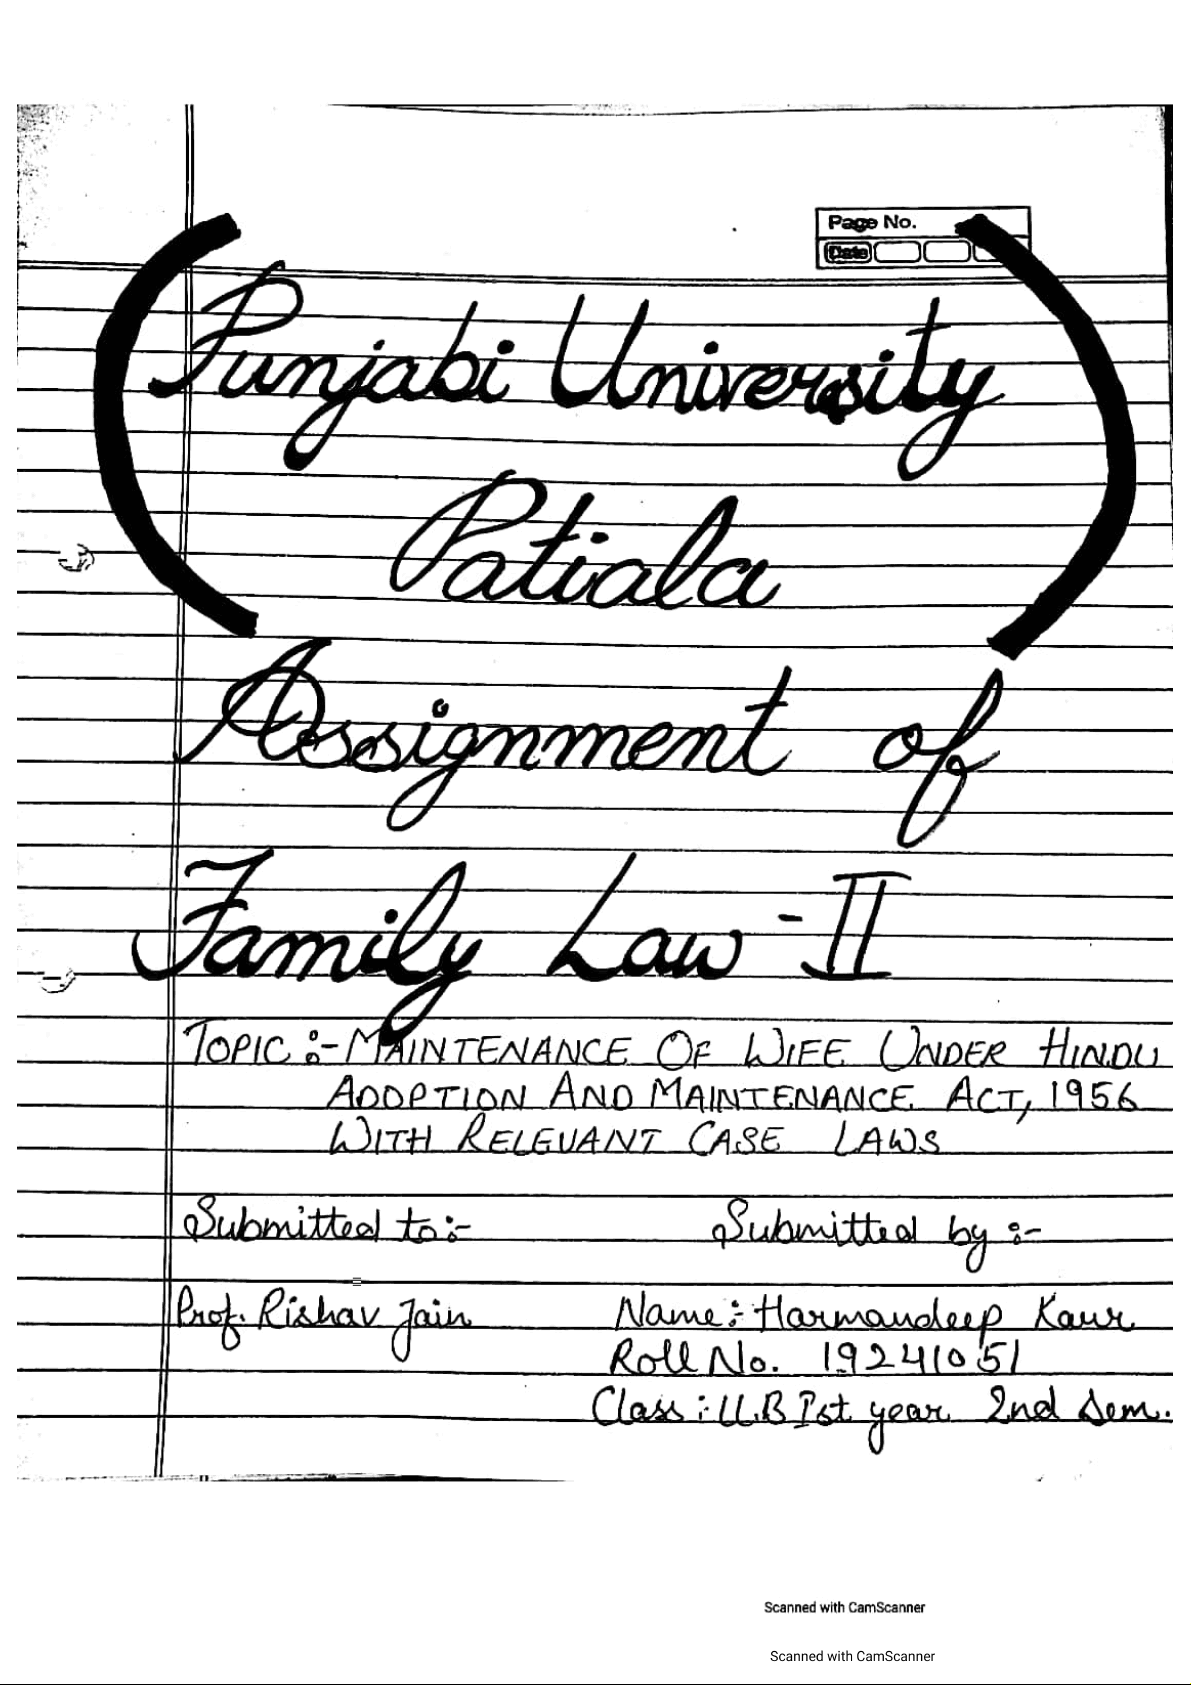 Page No.
Date
Punjabi University
Patiala
Assignment of
Family Law-II
TOPIC :- MAINTENANCE OF WIFE UNDER HINDU
ADOPTION AND MAINTENANCE ACT, 1956
WITH RELEVANT CASE LAWS
Submitted to:- Submitted by :-
Prof. Rishav Jain Name:- Harmandeep Kaur
Roll No. 19241051
Class :- LL.B Ist year 2nd Sem.
Scanned with CamScanner
Scanned with CamScanner